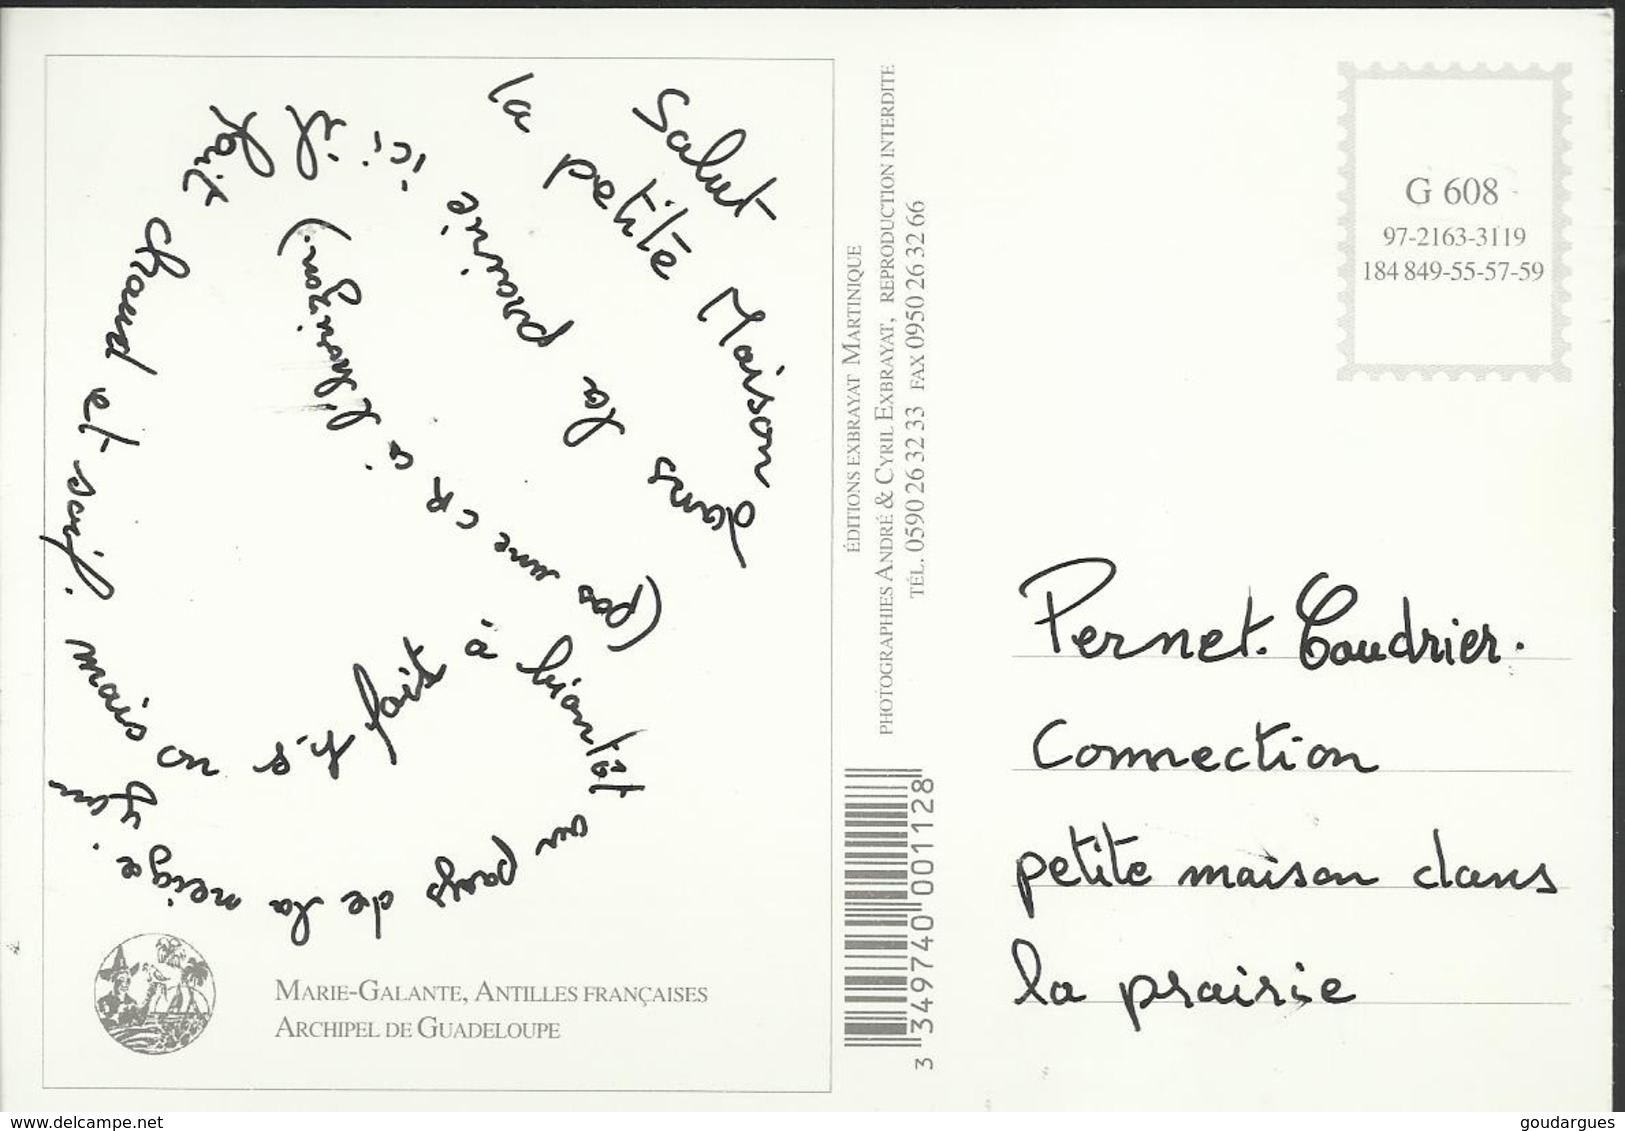 Salut
la petite Maison dans
la prairie ici il
fait chaud et soif. mais on
a h.s
fait
à bientôt
au pays de la neige. Yan
(pas une CR à l'horizon).
MARIE-GALANTE, ANTILLES FRANÇAISES
ARCHIPEL DE GUADELOUPE
ÉDITIONS EXBRAYAT MARTINIQUE
PHOTOGRAPHIES ANDRÉ & CYRIL EXBRAYAT, REPRODUCTION INTERDITE
TÉL. 0590 26 32 33 FAX 0950 26 32 66
3 349740 001128
G 608
97-2163-3119
184 849-55-57-59
Pernet. Coudrier.
Connection
petite maison dans
la prairie
www.delcampe.net
goudargues